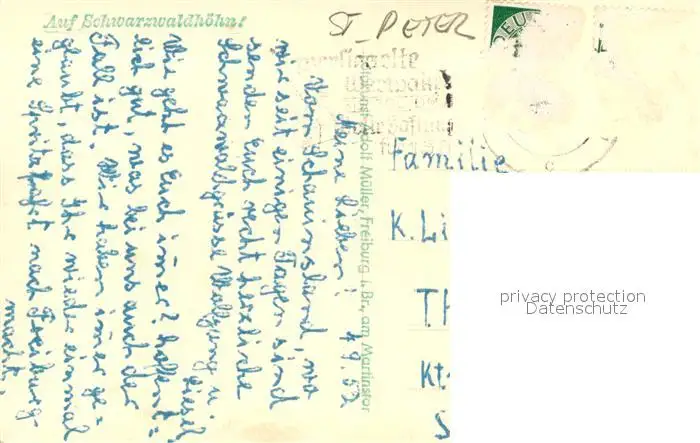 Auf Schwarzwaldhöhn!
ST. PETER
DEU
Meine Lieben! 4.9.52
Vom Schauinsland, wo
wir seit einigen Tagen sind
senden Euch recht herzliche
Schwarzwaldgrüsse Wolfgang u.
Liesel
Wie geht es Euch immer? Hoffent-
lich gut, was bei uns auch der
Fall ist. Wir haben immer ge-
glaubt, dass Ihr wieder einmal
eine Spritzfahrt nach Freiburg
macht.
Müller, Freiburg i. Br., am Martinstor
Familie
K. Li
T.
Kt.
S
privacy protection
Datenschutz